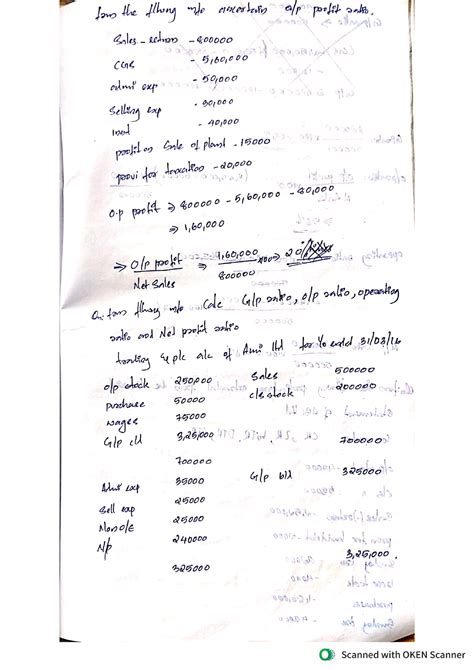 from the fllwng info ascertain o/p profit ratio.
Sales - return - 800000
CGS - 5,60,000
admi exp - 50,000
Selling exp - 30,000
- 40,000
profit on Sale of plant - 15000
provi for taxation - 20,000
o.p profit ⇒ 800000 - 5,60,000 - 80,000
⇒ 1,60,000
⇒ O/p profit / Net Sales ⇒ 1,60,000 / 800000 × 100 ⇒ 20%
Q: from fllwng info Calc G/p ratio, o/p ratio, operating
ratio and Net profit ratio
trading & plc a/c of Ami ltd for Ye ended 31/03/14
o/p stock 250,000 Sales 500000
purchase 50000 c/s stock 200000
wages 75000
G/p c/d 3,25,000 700000
700000
Admi exp 35000 G/p b/d 325000
Sell exp 25000
Non O/E 25000
N/p 240000
325000 3,25,000
Scanned with OKEN Scanner